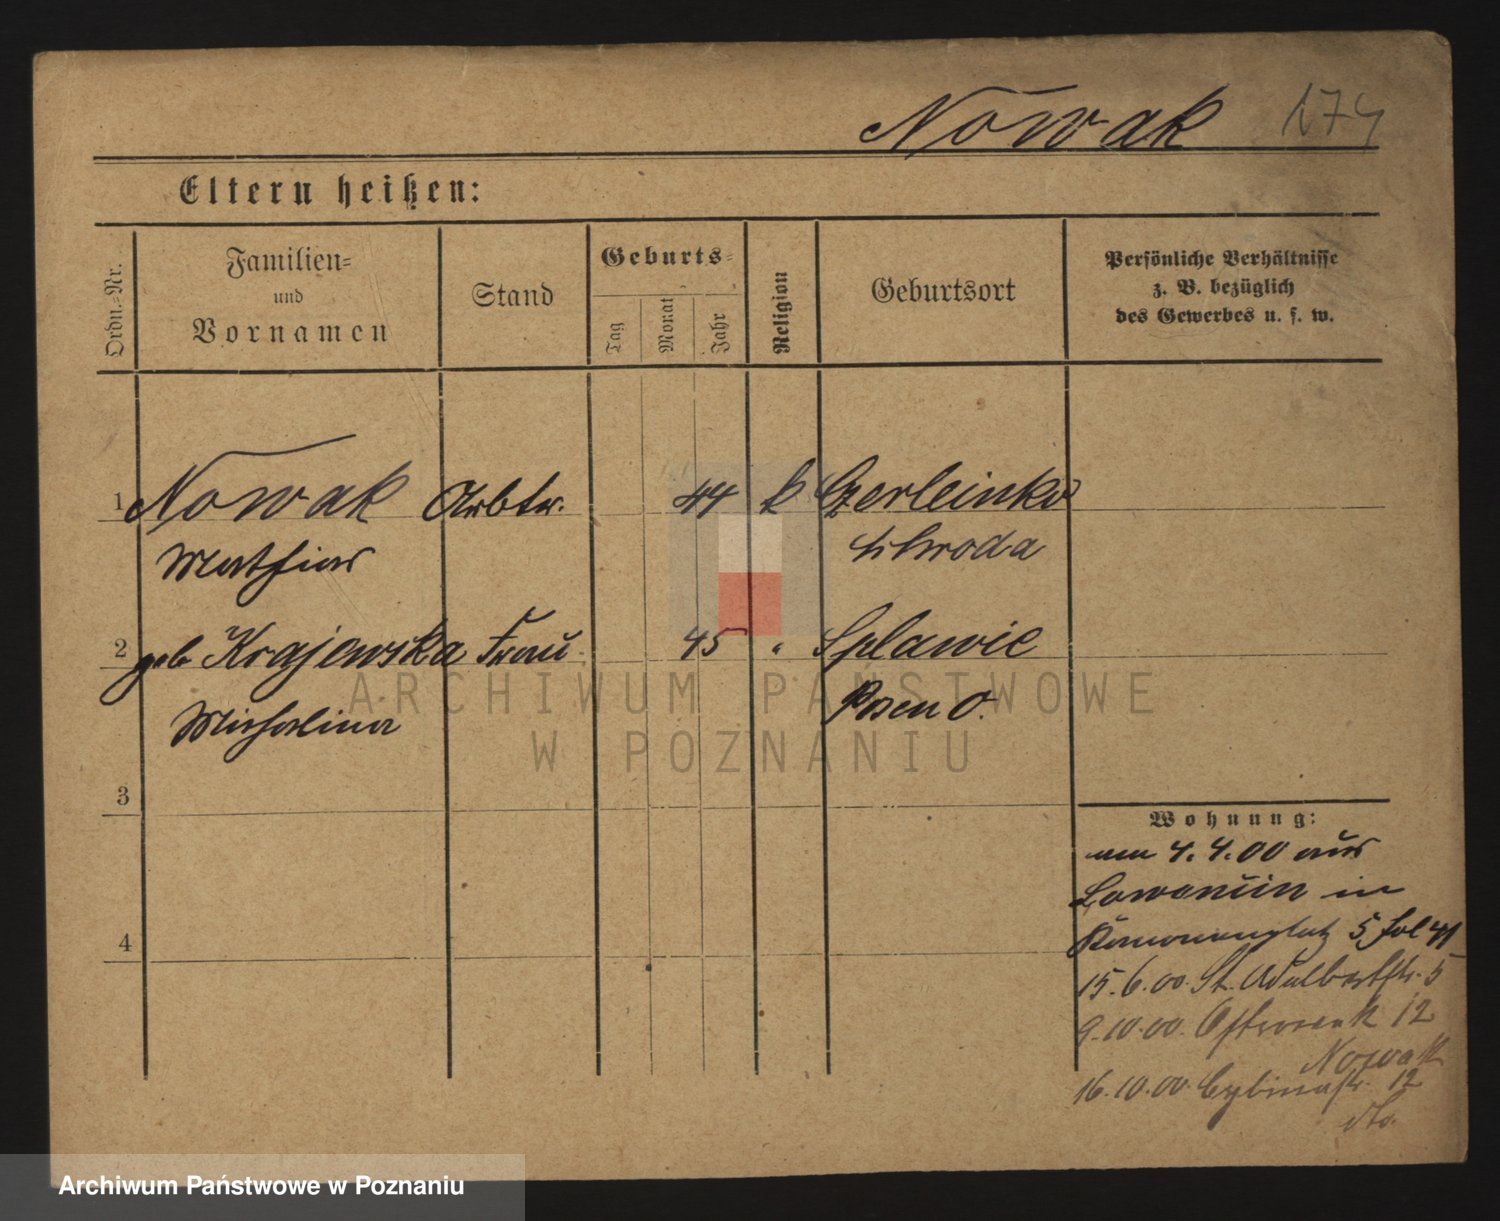 Nowak 174
Eltern heißen:
Ordn.-Nr.
Familien-
und
Vornamen
Stand
Geburts-
Tag
Monat
Jahr
Religion
Geburtsort
Persönliche Verhältnisse
z. B. bezüglich
des Gewerbes u. s. w.
1 Nowak Arbtr. 44 k Czerleinko
Mathias Schroda
2 geb Krajewska Frau 45 " Splawie
Michalina Posen O.
3
4
Wohnung:
am 4.4.00 aus
in
5 fol 41
15.6.00. St. Adalbertstr. 5
9.10.00. Ostrowek 12
Nowak
16.10.00. Cybinastr. 12
dto.
ARCHIWUM PAŃSTWOWE
W POZNANIU
Archiwum Państwowe w Poznaniu